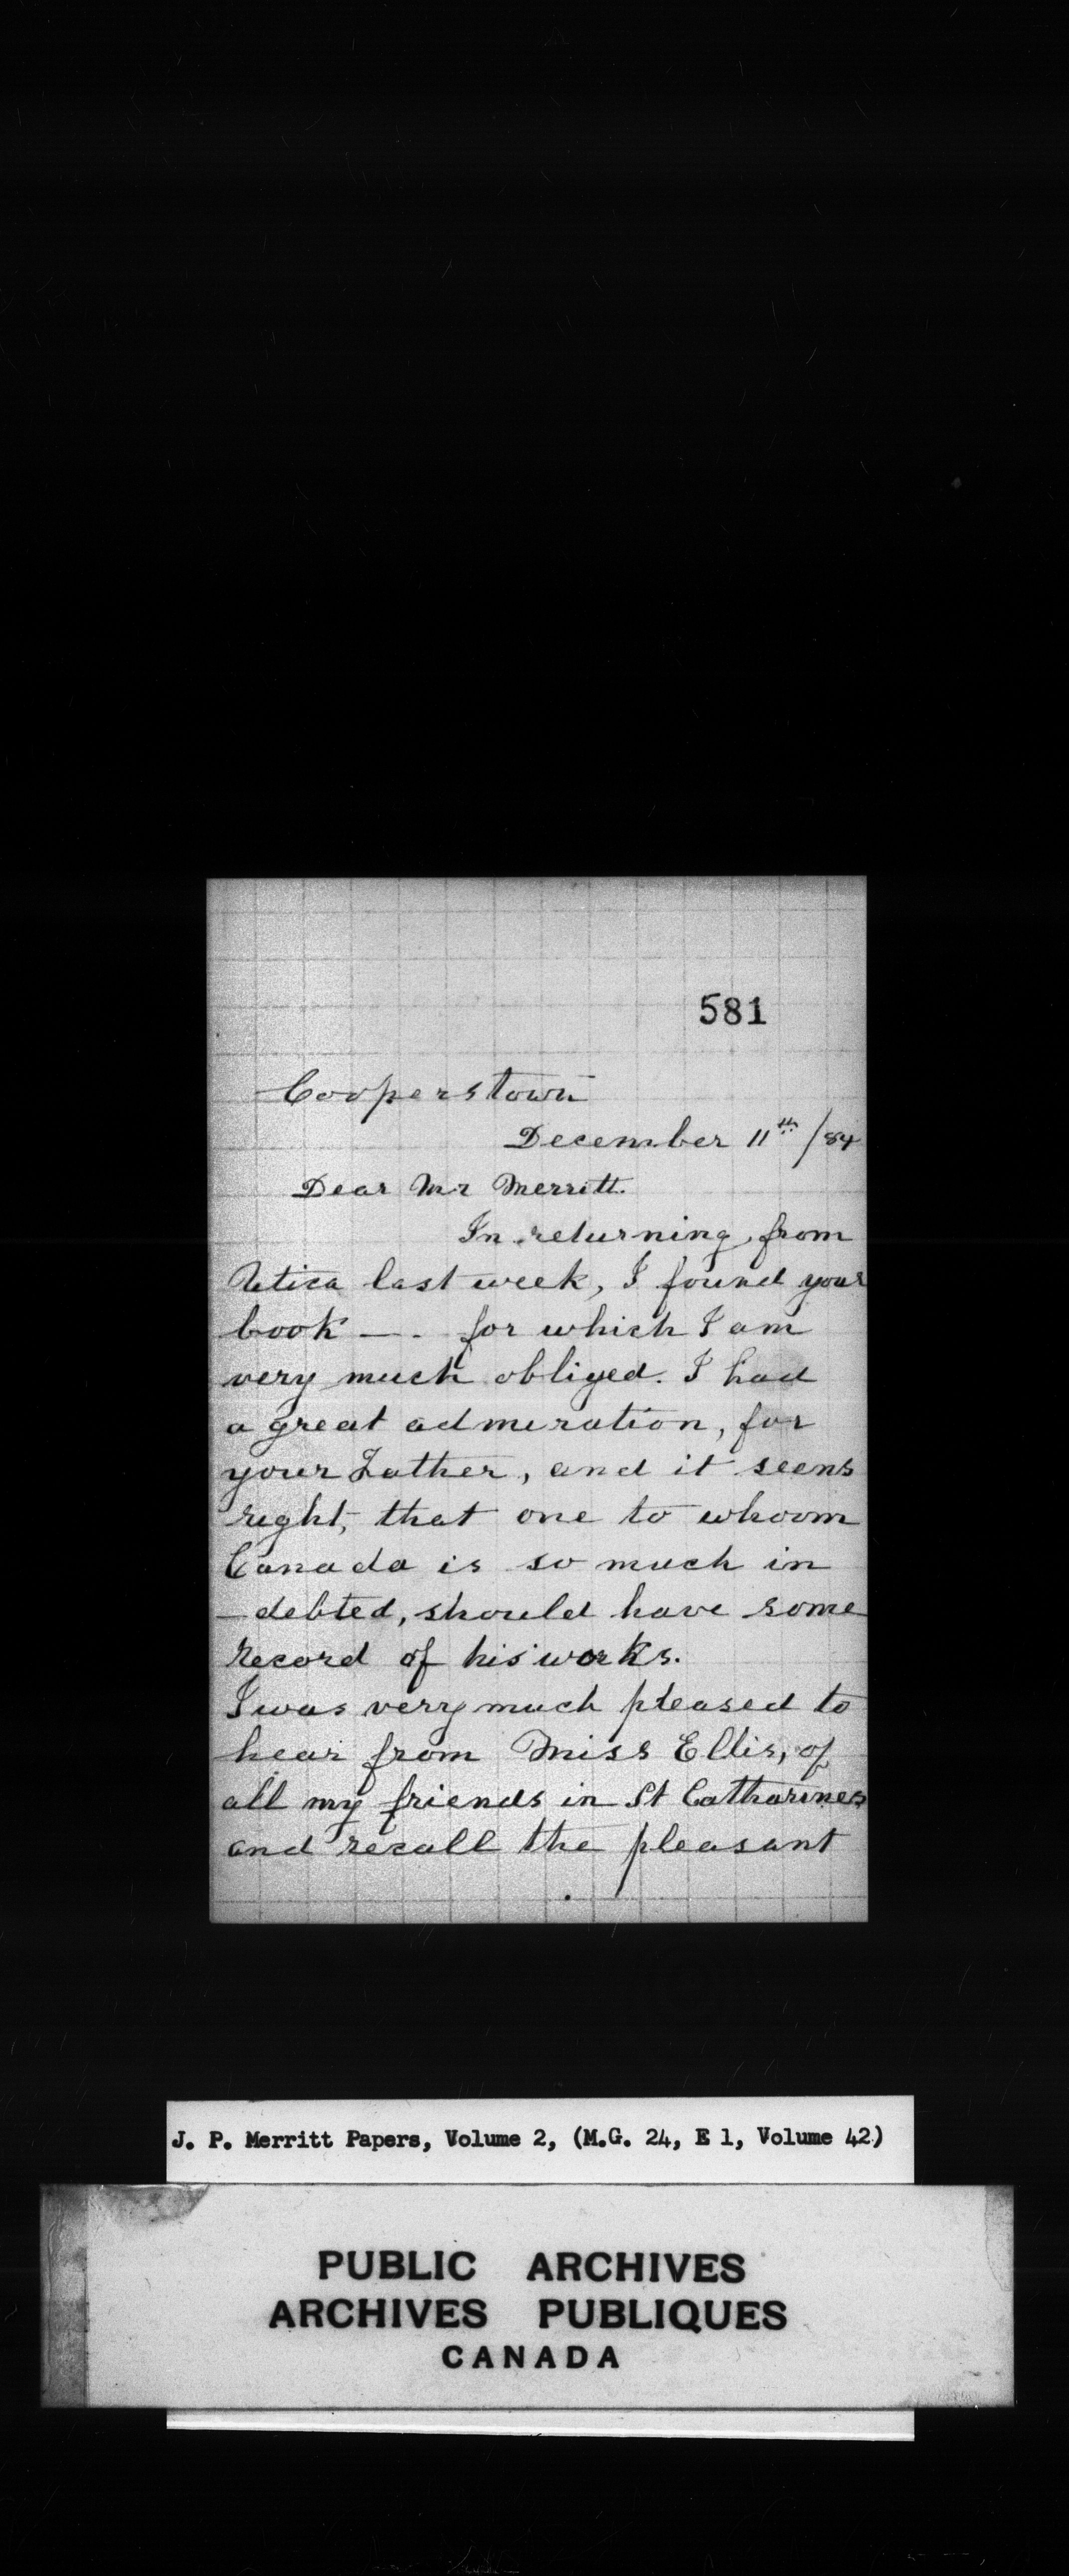 581
Cooperstown
December 11th /84
Dear Mr Merritt.
In returning from
Utica last week, I found your
book — . for which I am
very much obliged. I had
a great admeration, for
your Father, and it seems
right, that one to whoom
Canada is so much in
-debted, should have some
record of his works.
I was very much pleased to
hear from Miss Ellis, of
all my friends in St Catharines
and recall the pleasant
J. P. Merritt Papers, Volume 2, (M.G. 24, E 1, Volume 42)
PUBLIC ARCHIVES
ARCHIVES PUBLIQUES
CANADA